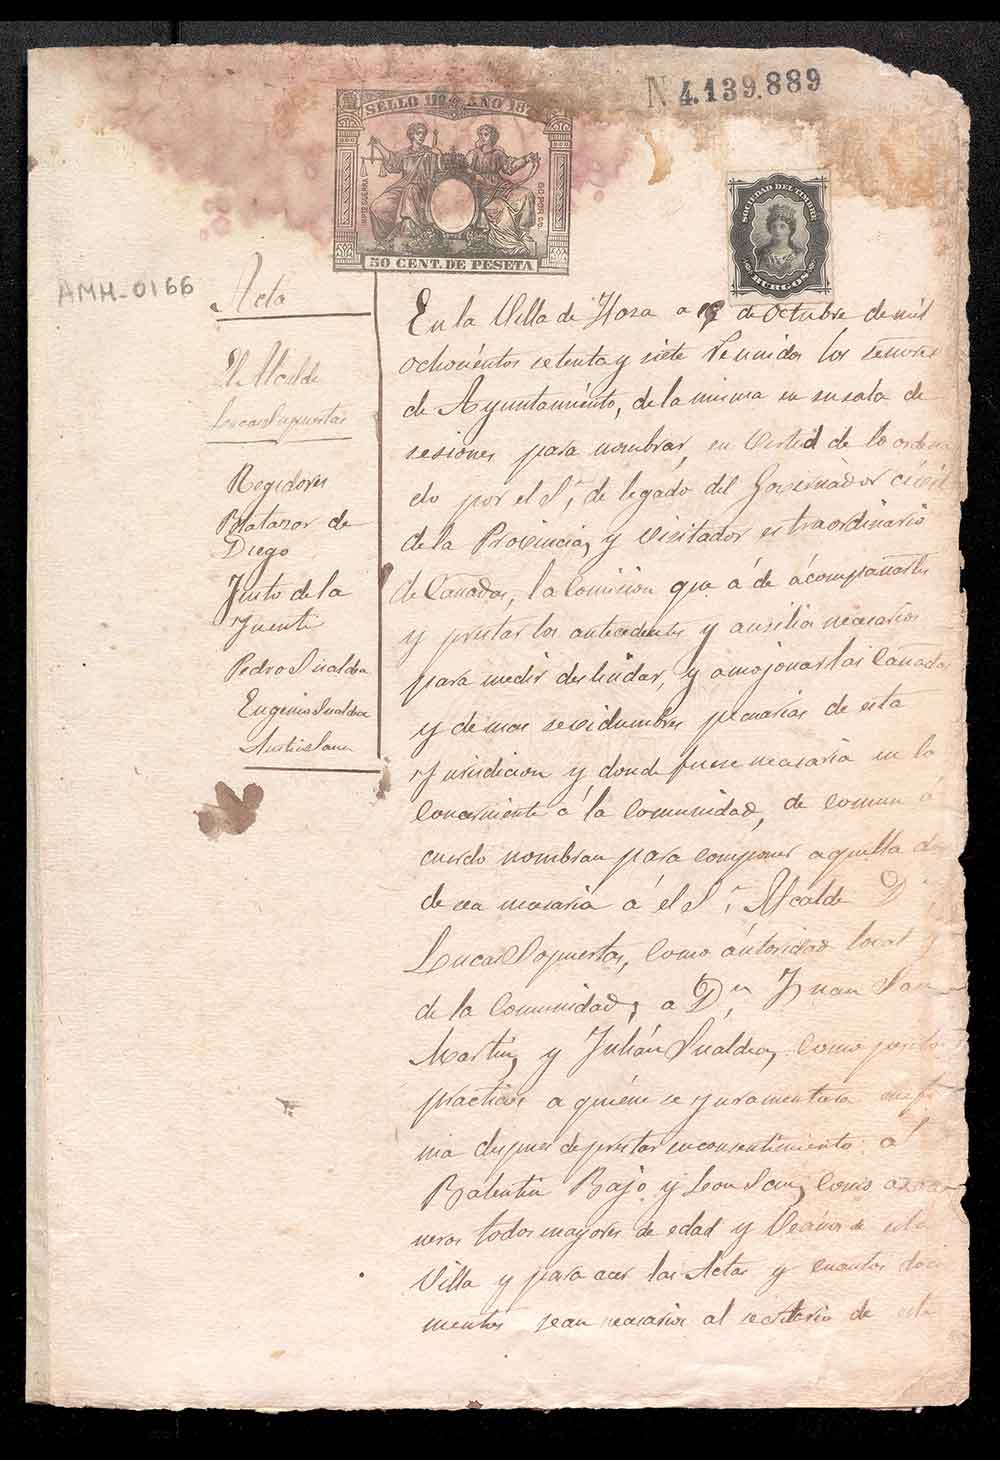 N 4.139.889
SELLO 11º AÑO 18
50 CENT. DE PESETA
SOCIEDAD DEL TIMBRE
BURGOS
AMH-0166
Acta
El Alcalde
Lucas Supuertas
Regidores
Baltazar de
Diego
Justo de la
Fuente
Pedro Sualdea
Eugenio Sualdea
En la Villa de Hoza a de Octubre de mil
ochocientos setenta y siete Reunidos los Señores
de Ayuntamiento, de la misma en su sala de
sesiones para nombrar, en Virtud de lo ordena
do por el Sr. de legado del Governador civil
de la Provincia, y Visitador estraordinario
de Cañadas, la Comision que á de ácompañarles
y prestar los antecedentes y ausilio necesarios
para medir deslindar, y amojonar las Cañadas
y demas sevidumbres pecuarias de esta
Jurisdicion y donde fuese necesaria en lo
Concerniente á la Comunidad, de comun á
cuerdo nombran para componer aquella
de cea mesaria á el Sr. Alcalde D.
Lucas Supuertas, como áutoridad local y
de la Comunidad; a Dn. Juan San
Martin, y Julián Sualdea, como perito
practicos a quiene se juramentara
mia despues de prestar su consentimiento a
Balentin Bajo y Leon San, como
neros todos mayores de edad y Vecinos de esta
Villa y para acer las Actas y cuantos docu
mentos sean necesarios al secretario de esta